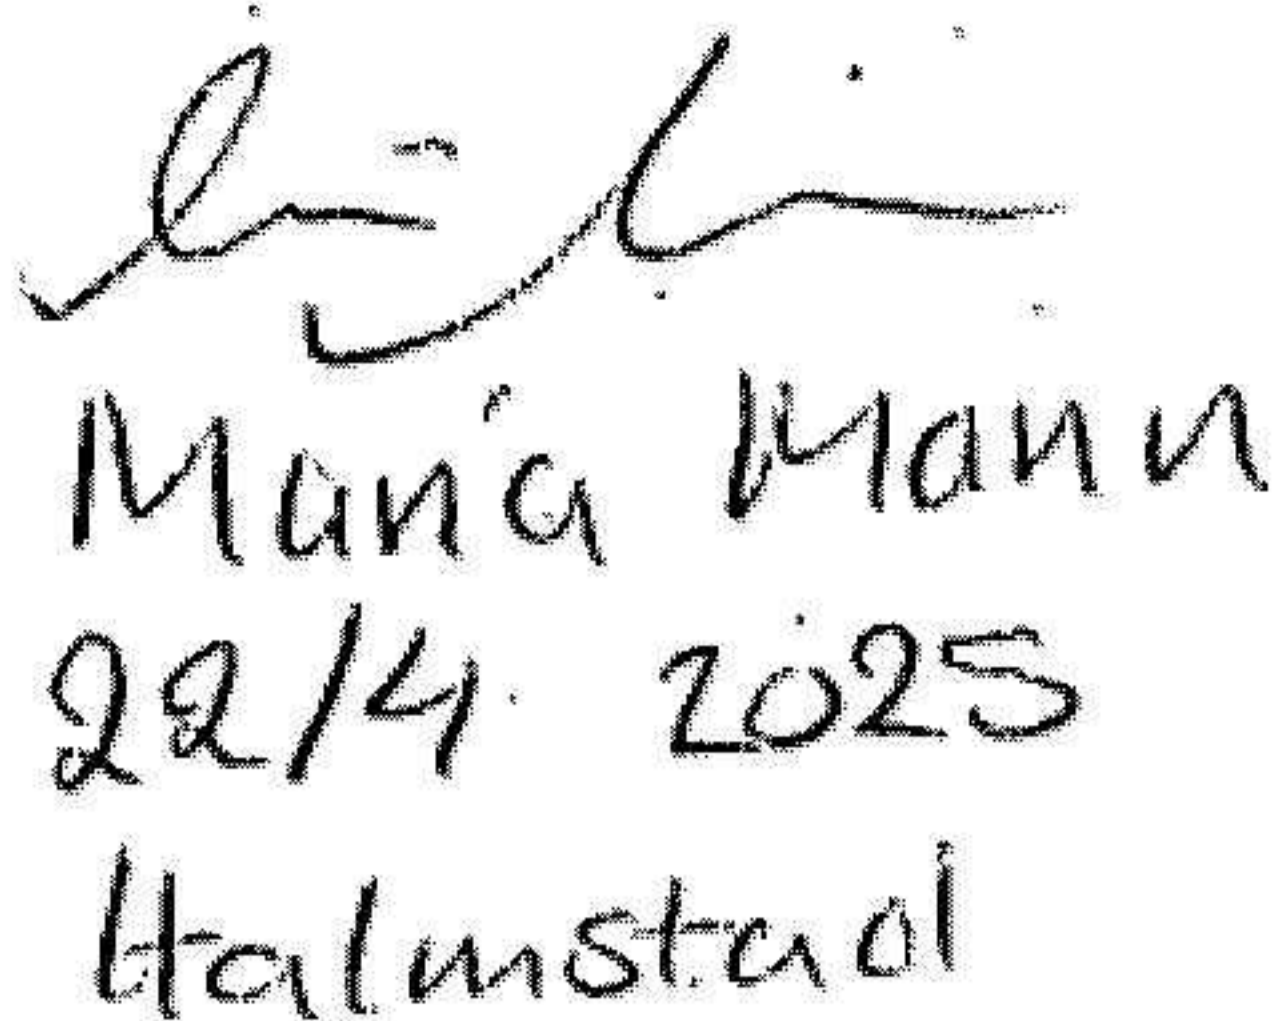 Maria Mann
22/4 2025
Halmstad